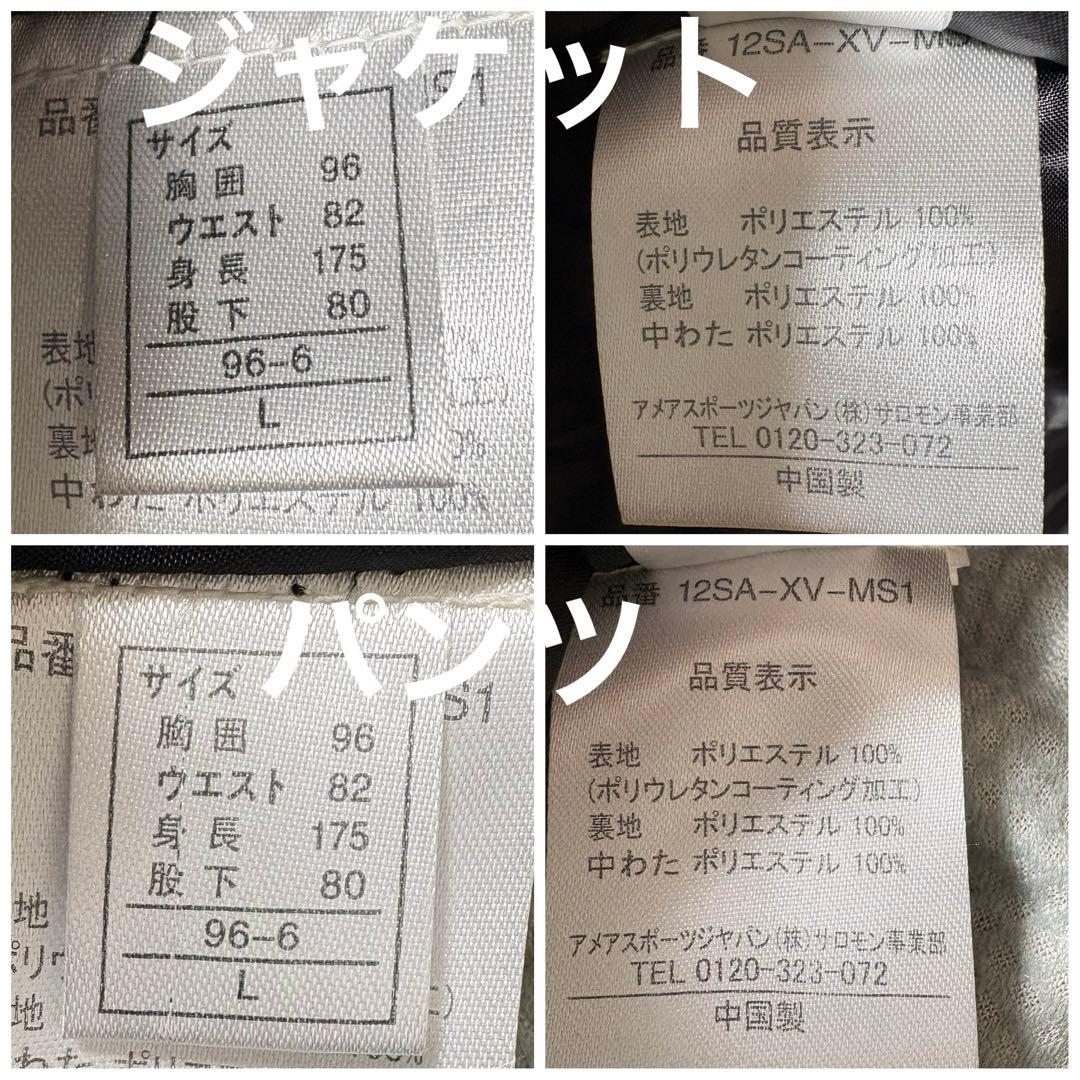 ジャケット
品番
S1
サイズ
胸囲 96
ウエスト 82
身長 175
股下 80
96-6
L
表地
(ポリ
裏地
中わた ポリエステル 100%
品番 12SA-XV-MS
品質表示
表地 ポリエステル 100%
(ポリウレタンコーティング加工)
裏地 ポリエステル 100%
中わた ポリエステル 100%
アメアスポーツジャパン(株)サロモン事業部
TEL 0120-323-072
中国製
パンツ
品番
S1
サイズ
胸囲 96
ウエスト 82
身長 175
股下 80
96-6
L
地
ポリウ
地
わた ポリエ
100%
品番 12SA-XV-MS1
品質表示
表地 ポリエステル 100%
(ポリウレタンコーティング加工)
裏地 ポリエステル 100%
中わた ポリエステル 100%
アメアスポーツジャパン(株)サロモン事業部
TEL 0120-323-072
中国製